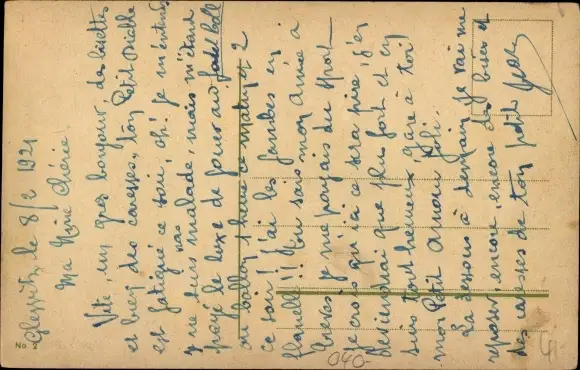 le 8/2 1921
Ma Mine chérie.
Vite, un gros bonjour, des bisettes
et bien des caresses, ton Petit Diable
est fatigué ce soir, oh! je m'entends
je ne suis pas malade, mais m'étant
payé le luxe de jouer au foot ball
au ballon 1 heure ce matin et 2
ce soir! j'ai les jambes en
flanelle!! Tu sais mon Aimée à
je me payais du sport
je crois qu'ici ce sera pire, j'en
deviendrai que plus fort et en
suis tout heureux, gare à toi!
mon Petit Amour Joli.
Là dessus à demain, je vais me
reposer, encore, encore des bises et
des caresses de ton petit Jean
No 2
040-